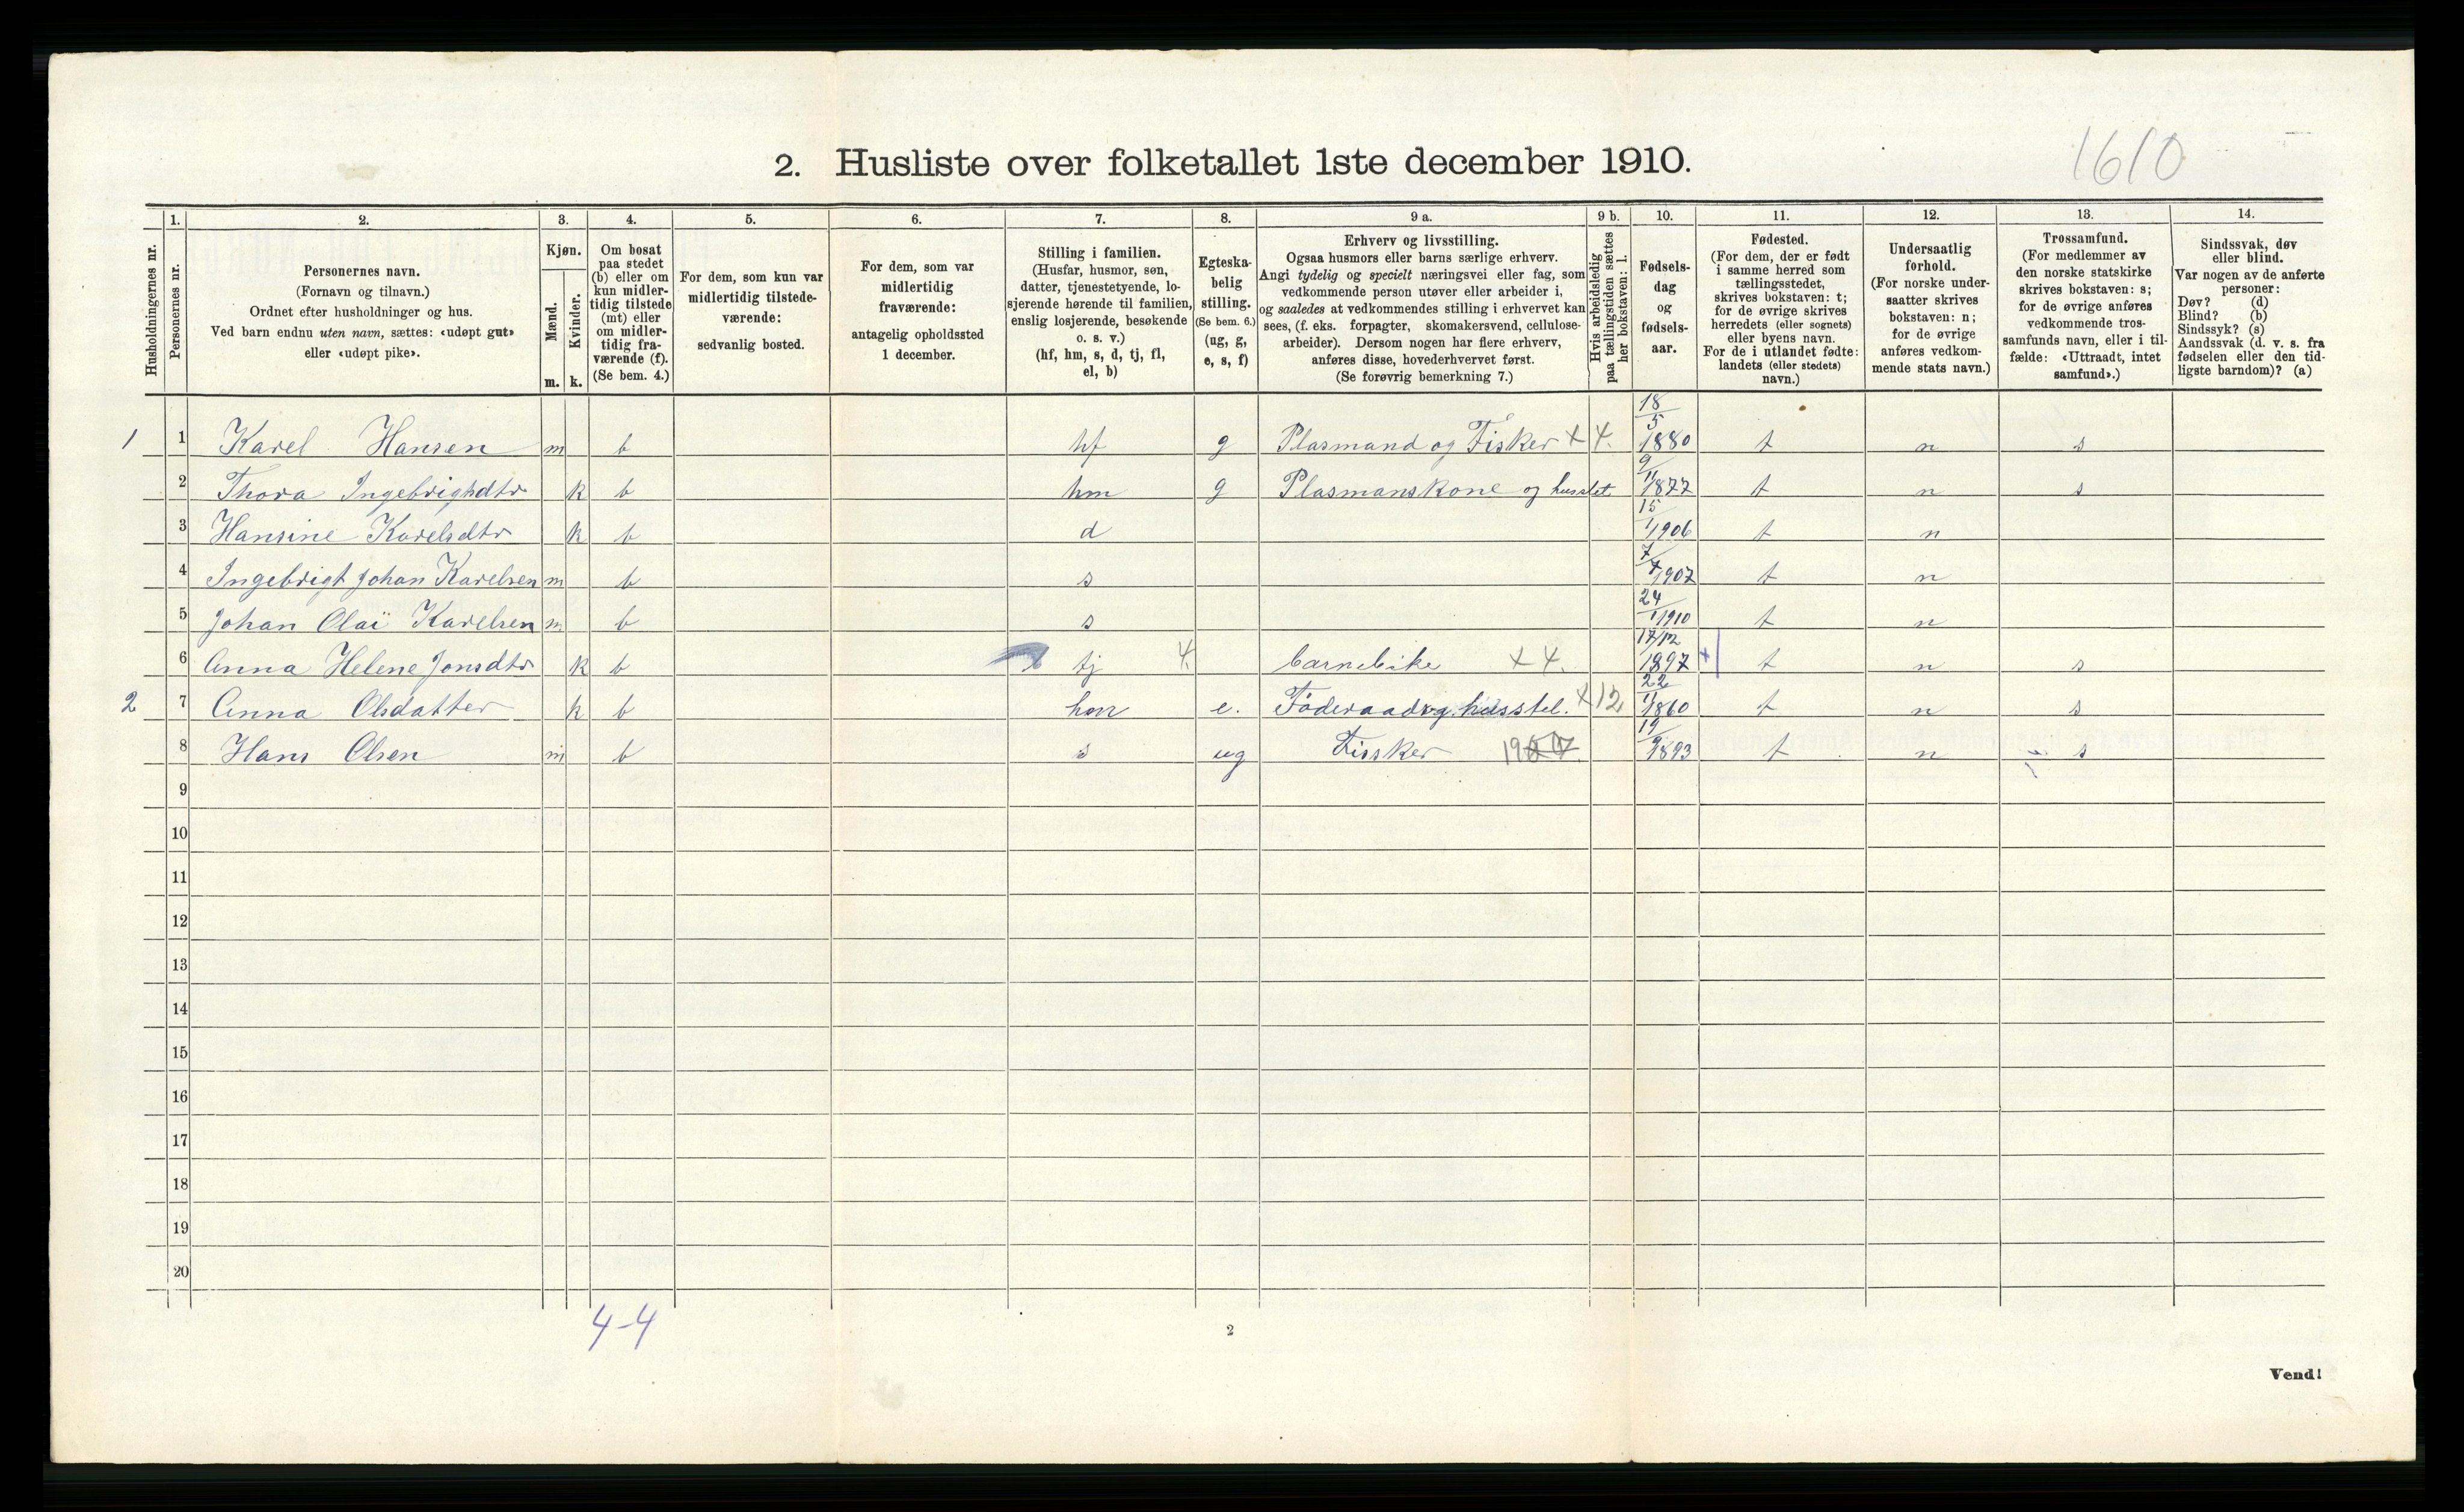 1610
2. Husliste over folketallet 1ste december 1910.
Husholdningernes nr.
1. Personernes nr.
2. Personernes navn. (Fornavn og tilnavn.) Ordnet efter husholdninger og hus. Ved barn endnu uten navn, sættes: «udøpt gut» eller «udøpt pike».
3. Kjøn. Mænd. m. Kvinder. k.
4. Om bosat paa stedet (b) eller om kun midlertidig tilstede (mt) eller om midlertidig fraværende (f). (Se bem. 4.)
5. For dem, som kun var midlertidig tilstedeværende: sedvanlig bosted.
6. For dem, som var midlertidig fraværende: antagelig opholdssted 1 december.
7. Stilling i familien. (Husfar, husmor, søn, datter, tjenestetyende, losjerende hørende til familien, enslig losjerende, besøkende o. s. v.) (hf, hm, s, d, tj, fl, el, b)
8. Egteskabelig stilling. (Se bem. 6.) (ug, g, e, s, f)
9 a. Erhverv og livsstilling. Ogsaa husmors eller barns særlige erhverv. Angi tydelig og specielt næringsvei eller fag, som vedkommende person utøver eller arbeider i, og saaledes at vedkommendes stilling i erhvervet kan sees, (f. eks. forpagter, skomakersvend, cellulosearbeider). Dersom nogen har flere erhverv, anføres disse, hovederhvervet først. (Se forøvrig bemerkning 7.)
9 b. Hvis arbeidsledig paa tællingstiden sættes her bokstaven: l.
10. Fødselsdag og fødselsaar.
11. Fødested. (For dem, der er født i samme herred som tællingsstedet, skrives bokstaven: t; for de øvrige skrives herredets (eller sognets) eller byens navn. For de i utlandet fødte: landets (eller stedets) navn.)
12. Undersaatlig forhold. (For norske undersaatter skrives bokstaven: n; for de øvrige anføres vedkommende stats navn.)
13. Trossamfund. (For medlemmer av den norske statskirke skrives bokstaven: s; for de øvrige anføres vedkommende trossamfunds navn, eller i tilfælde: «Uttraadt, intet samfund».)
14. Sindssvak, døv eller blind. Var nogen av de anførte personer: Døv? (d) Blind? (b) Sindssyk? (s) Aandssvak (d. v. s. fra fødselen eller den tidligste barndom)? (a)
1 1 Karel Hansen m b hf g Plasmand og Fisker x 4. 18/5 1880 t n s
2 Thora Ingebrightdtr k b hm g Plasmanskone og husstel 9/11 1877 t n s
3 Hansine Karelsdtr k b d 15/1 1906 t n
4 Ingebrigt Johan Karelsen m b s 7/7 1907 t n
5 Johan Olai Karelsen m b s 24/1 1910 t n
6 Anna Helene Jonsdtr k b tj 4. barnebike x 4. 17/12 1897 t n s
2 7 Anna Olsdatter k b hm e. Føderaad og husstel. x 12 22/11 1860 t n s
8 Hans Olsen m b s ug Fissker 19/9 1893 t n s
9
10
11
12
13
14
15
16
17
18
19
20
4-4
2
Vend!